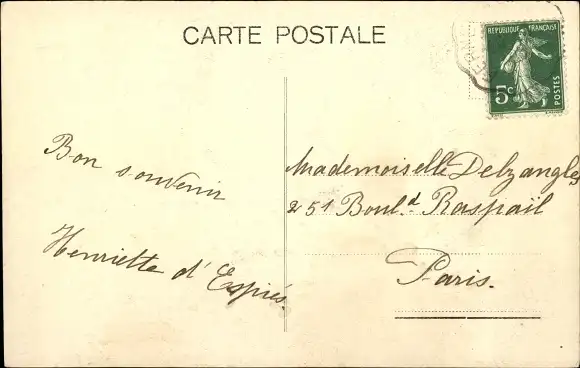 CARTE POSTALE
REPUBLIQUE FRANÇAISE
5c
POSTES
Bon souvenir
Henriette d'Espiés.
Mademoiselle Delzangles
251 Boul.d Raspail
Paris.